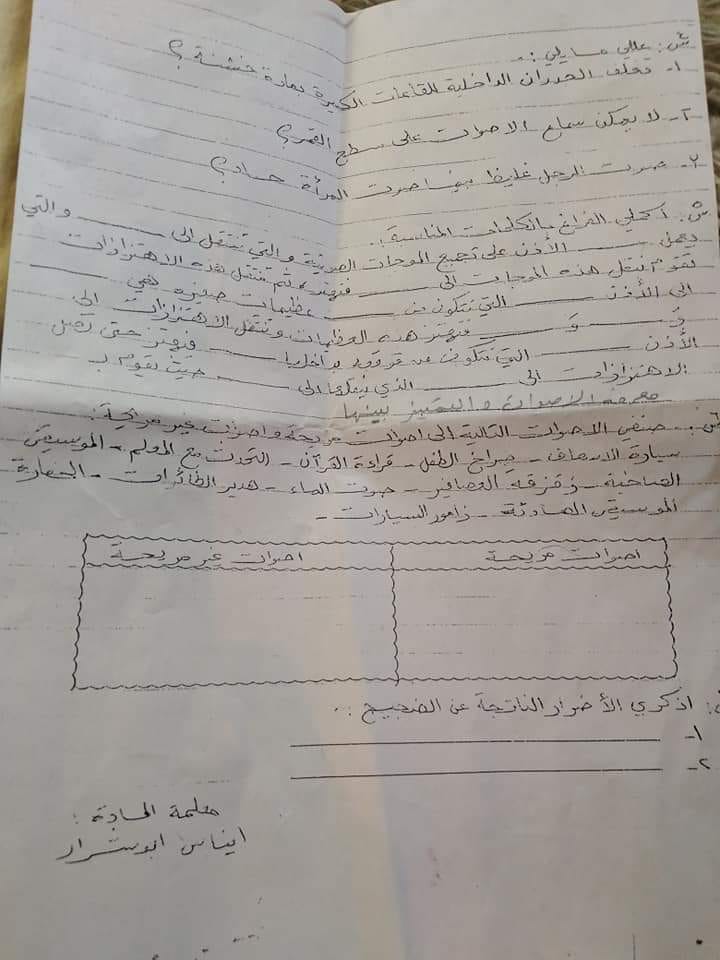 س: عللي ما يلي :-
١- تغلف الجدران الداخلية للقاعات الكبيرة بمادة خشنة ؟
٢- لا يمكن سماع الاصوات على سطح القمر؟
٣- صوت الرجل غليظ بينما صوت المرأة حاد ؟
س: أكملي الفراغ بالكلمات المناسبة :.
يعمل ______ الأذن على تجميع الموجات الصوتية والتي تنتقل الى ______ والتي
تقوم بنقل هذه الموجات الى ______ فتهتز ثم تنتقل هذه الاهتزازات
الى الأذن ______ التي تتكون من ______ عظيمات صغيره هي ______
و ______ و ______ فتهتز هذه العظيمات وتنتقل الاهتزازات الى
الأذن ______ التي تتكون من قوقعة بداخلها ______ فيهتز حتى تصل
الاهتزازات الى ______ الذي ينقلها الى ______ حيث يقوم بـ
معرفة الاصوات والتمييز بينها
س:. صنفي الاصوات التالية الى اصوات مريحة واصوات غير مريحة :
سيارة الاسعاف - صراخ الطفل - قراءة القرآن - التحدث مع المعلم - الموسيقى
الصاخبة - زقزقة العصافير - صوت الماء - هدير الطائرات - الحفارة
الموسيقى الهادئة - زامور السيارات -
اصوات مريحة
اصوات غير مريحة
س: اذكري الأضرار الناتجة عن الضجيج :.
١- ______
٢- ______
معلمة المادة :
ايناس ابو شرار